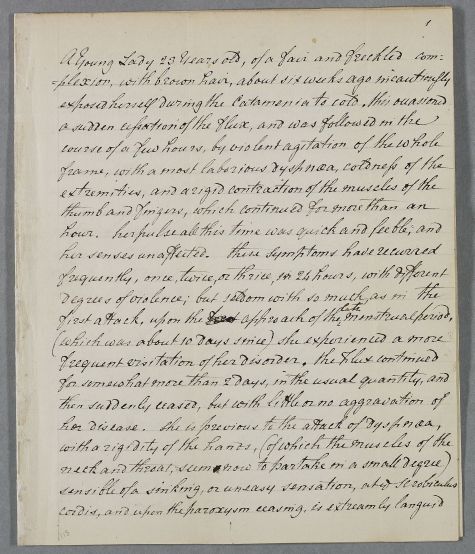 1
A Young Lady 23 Years old, of a fair and freckled com-
-plexion, with brown hair, about six weeks ago incautiously
exposed herself during the Catamenia to cold. this occasiond
a sudden cessation of the Flux, and was followed in the
course of a few hours, by violent agitation of the whole
frame, with a most laborious dyspnœa, coldness of the
extremities, and a rigid contraction of the muscles of the
thumb and fingers, which continued for more than an
hour. her pulse all this time was quick and feeble, and
her senses unaffected. these symptoms have recurred
frequently, once, twice, or thrice, in 24 hours, with different
degrees of violence; but seldom with so much, as in the
first attack, upon the approach of the late menstrual period,
(which was about 10 days since) she experienced a more
frequent visitation of her disorder. the flux continued
for somewhat more than 2 days, in the usual quantity, and
then suddenly ceased, but with little or no aggravation of
her disease. she is previous to the attack of dyspnœa,
with a rigidity of the hands, (of which the muscles of the
neck and throat, seem now to partake in a small degree)
sensible of a sinking, or uneasy sensation, at ye scrobiculus
cordis, and upon the paroxysm ceasing, is extreamly languid